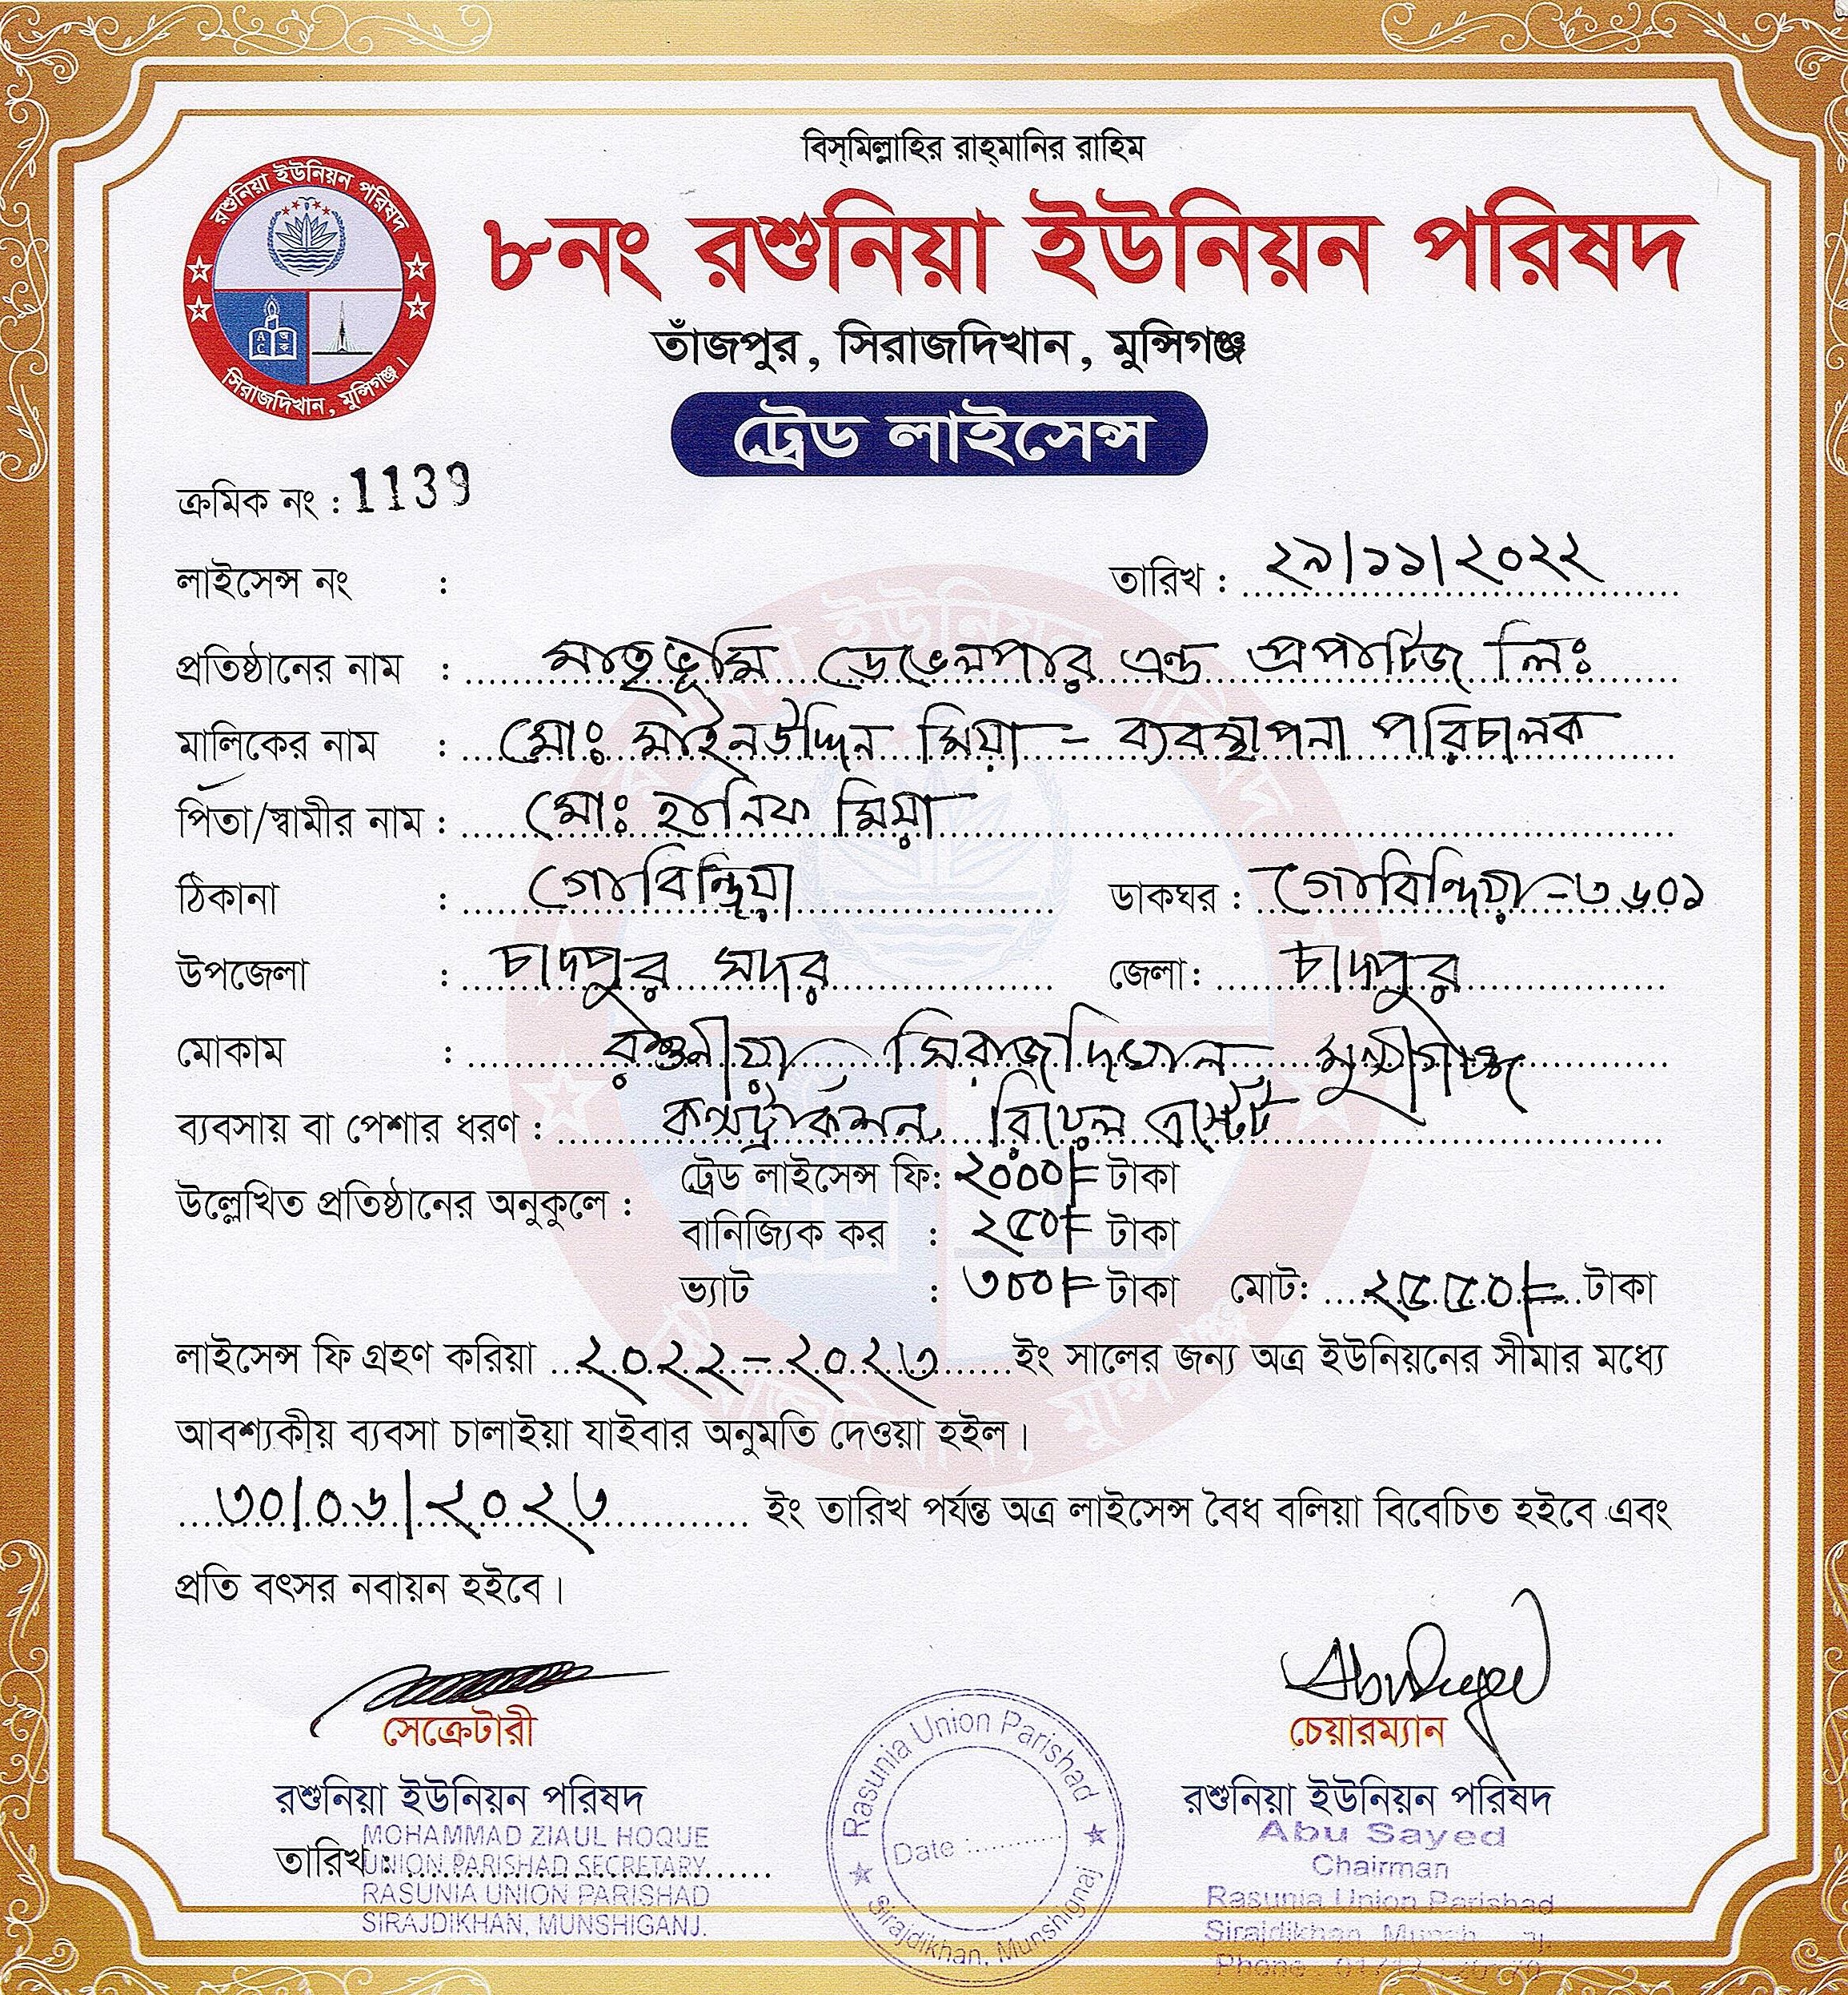 বিস্‌মিল্লাহির রাহ্‌মানির রাহিম
রশুনিয়া ইউনিয়ন পরিষদ
সিরাজদিখান, মুন্সিগঞ্জ।
৮নং রশুনিয়া ইউনিয়ন পরিষদ
তাঁজপুর, সিরাজদিখান, মুন্সিগঞ্জ
ট্রেড লাইসেন্স
ক্রমিক নং : 1139
লাইসেন্স নং : তারিখ : ২৯/১১/২০২২
প্রতিষ্ঠানের নাম : মাতৃভূমি ডেভেলপার এন্ড প্রপার্টিজ লিঃ
মালিকের নাম : মোঃ মাইনউদ্দিন মিয়া - ব্যবস্থাপনা পরিচালক
পিতা/স্বামীর নাম : মোঃ হানিফ মিয়া
ঠিকানা : গোবিন্দিয়া ডাকঘর : গোবিন্দিয়া-৩৬০১
উপজেলা : চাদপুর সদর জেলা: চাদপুর
মোকাম : রশুনীয়া সিরাজদিখান মুন্সীগঞ্জ
ব্যবসায় বা পেশার ধরণ : কন্সট্রাকশন, রিয়েল এস্টেট
উল্লেখিত প্রতিষ্ঠানের অনুকুলে : ট্রেড লাইসেন্স ফি: ২০০০/= টাকা
বানিজ্যিক কর : ২৫০/= টাকা
ভ্যাট : ৩০০/= টাকা মোট: ২৫৫০/= টাকা
লাইসেন্স ফি গ্রহণ করিয়া ২০২২-২০২৩ ইং সালের জন্য অত্র ইউনিয়নের সীমার মধ্যে
আবশ্যকীয় ব্যবসা চালাইয়া যাইবার অনুমতি দেওয়া হইল।
৩০/০৬/২০২৩ ইং তারিখ পর্যন্ত অত্র লাইসেন্স বৈধ বলিয়া বিবেচিত হইবে এবং
প্রতি বৎসর নবায়ন হইবে।
সেক্রেটারী
রশুনিয়া ইউনিয়ন পরিষদ
তারিখ:
MOHAMMAD ZIAUL HOQUE
UNION PARISHAD SECRETARY
RASUNIA UNION PARISHAD
SIRAJDIKHAN, MUNSHIGANJ.
Rasunia Union Parishad
Date :
Sirajdikhan, Munshignaj
Abu Sayed
চেয়ারম্যান
রশুনিয়া ইউনিয়ন পরিষদ
Abu Sayed
Chairman
Rasunia Union Parishad
Sirajdikhan
Phone